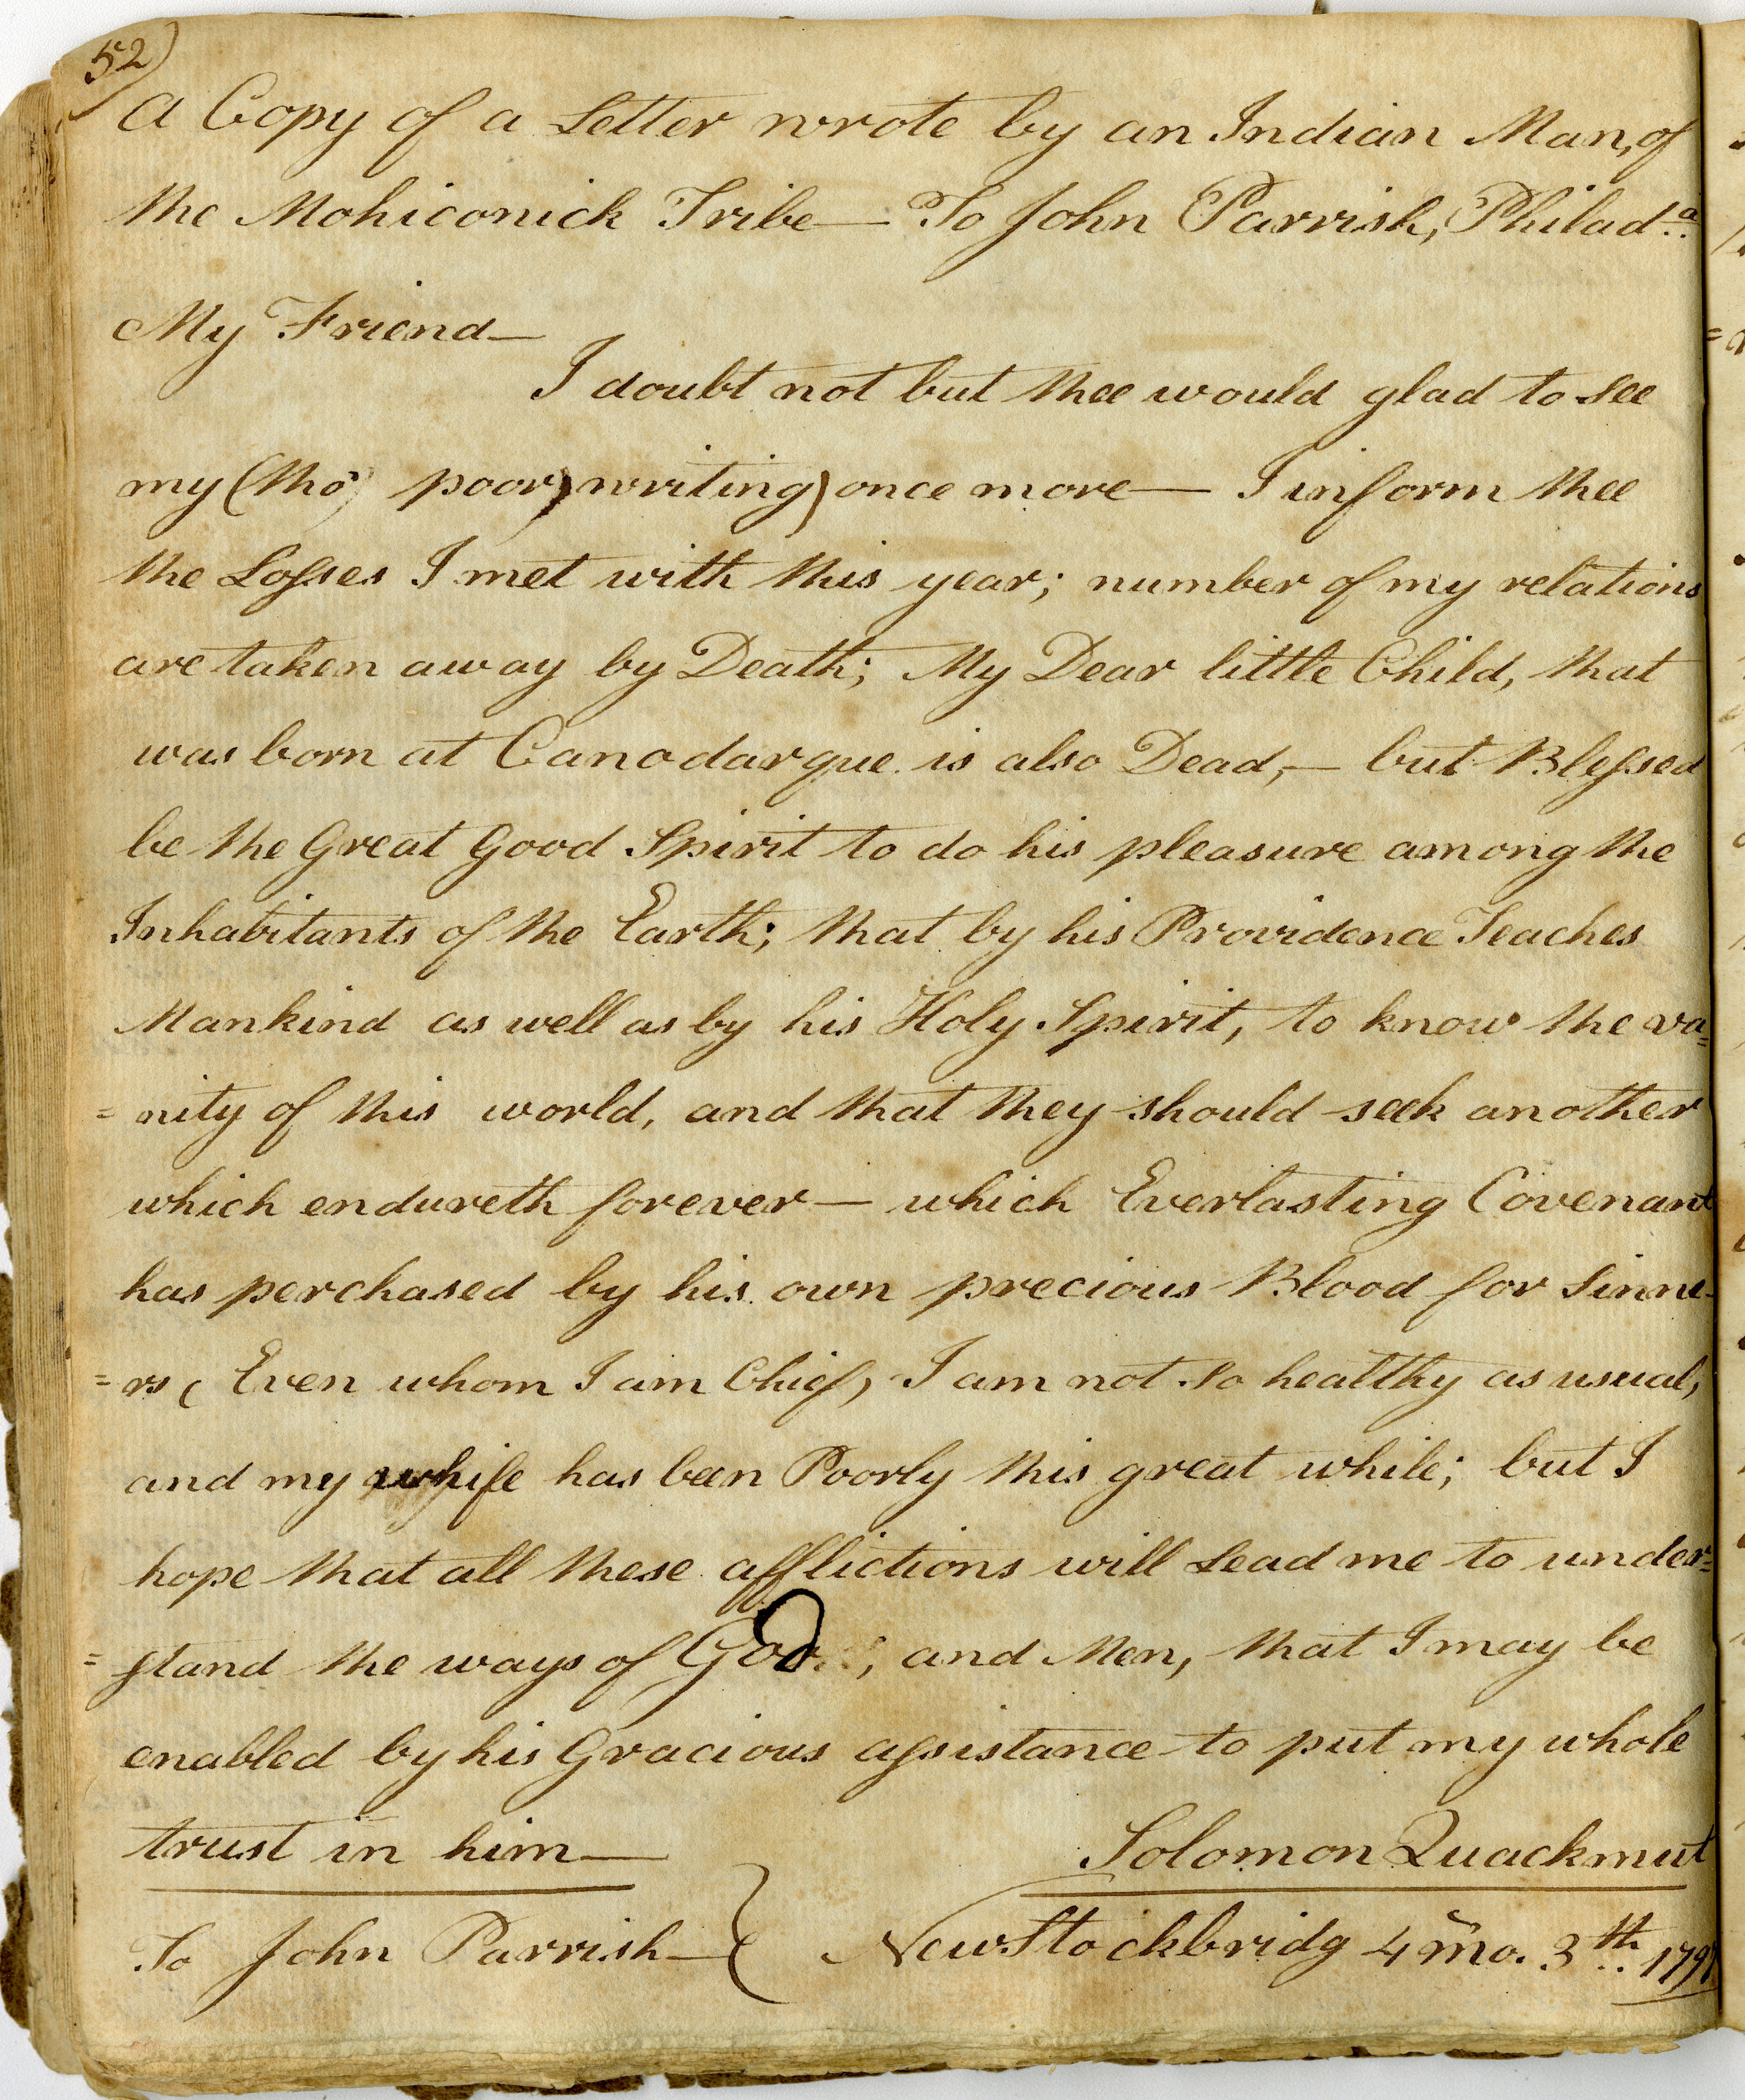 52)
A Copy of a Letter wrote by an Indian Man, of
the Mohiconick Tribe— To John Parrish, Philad.ª
My Friend—
I doubt not but thee would glad to see
my (tho' poor) writing) once more— I inform thee
the Losses I met with this year; number of my relations
are taken away by Death; My Dear little Child, that
was born at Canodarque is also Dead,— but Blessed
be the Great Good Spirit to do his pleasure among the
Inhabitants of the Earth; that by his Providence Teaches
Mankind as well as by his Holy Spirit, to know the va=
=nity of this world, and that they should seek another
which endureth forever— which Everlasting Covenant
has perchased by his own precious Blood for Sinne-
=rs ( Even whom I am Chief, I am not so healthy as usual,
and my whife has been Poorly this great while; but I
hope that all these afflictions will Lead me to under=
=stand the ways of God; and Men, that I may be
enabled by his Gracious assistance to put my whole
trust in him—
Solomon Quackmut
To John Parrish— } New Stockbridg 4 mo. 3th.